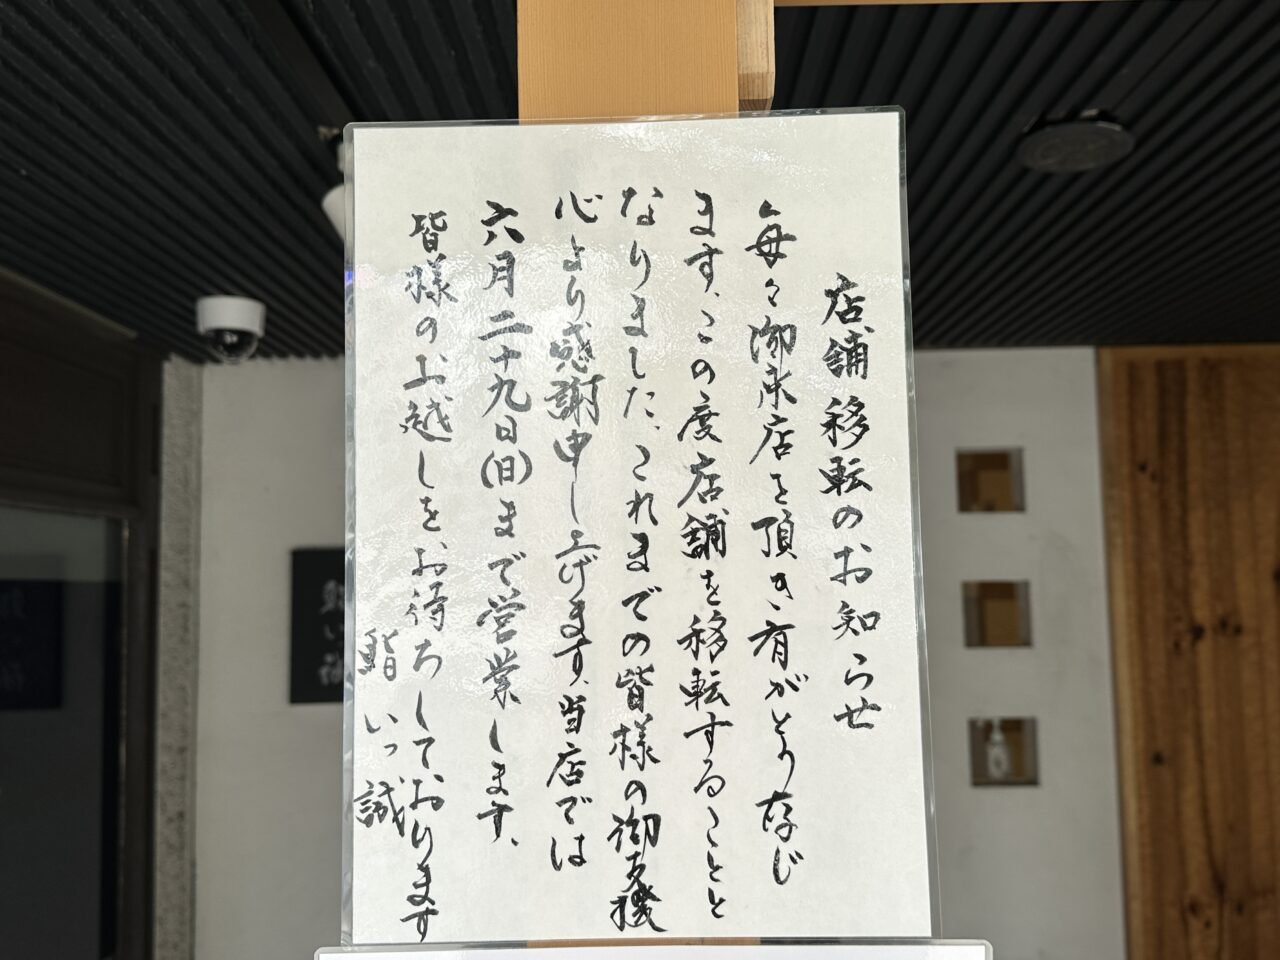 店舗移転のお知らせ
毎々御来店を頂き、有がとう存じ
ます、この度店舗を移転することと
なりました、これまでの皆様の御支援
心より感謝申し上げます、当店では
六月二十九日(日)まで営業します、
皆様のお越しをお待ちしております
鮨 いっ誠